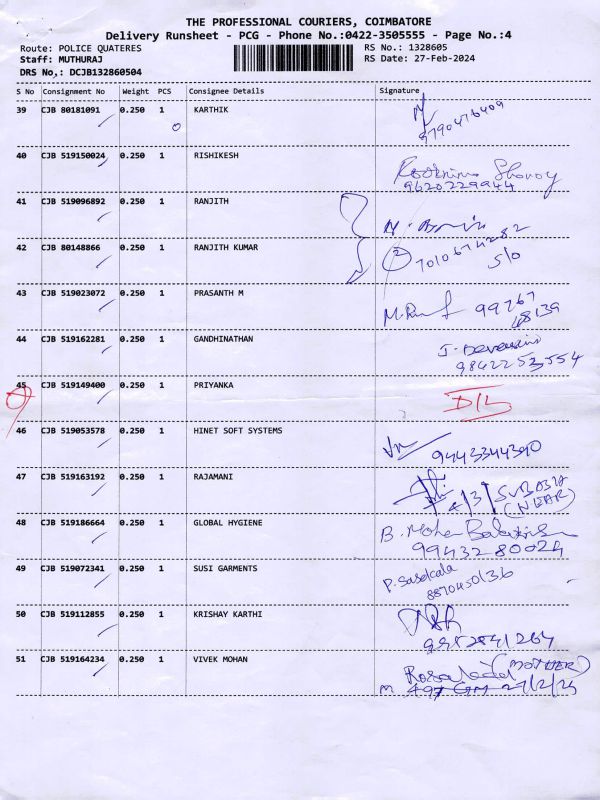 THE PROFESSIONAL COURIERS, COIMBATORE
Delivery Runsheet - PCG - Phone No.:0422-3505555 - Page No.:4
Route: POLICE QUATERES RS No.: 1328605
Staff: MUTHURAJ RS Date: 27-Feb-2024
DRS No,: DCJB132860504
S No Consignment No Weight PCS Consignee Details Signature
39 CJB 80181091 0.250 1 KARTHIK
9790476409
40 CJB 519150024 0.250 1 RISHIKESH
9620229944
41 CJB 519096892 0.250 1 RANJITH
42 CJB 80148866 0.250 1 RANJITH KUMAR
2 7010674282
S/o
43 CJB 519023072 0.250 1 PRASANTH M
99767
48139
44 CJB 519162281 0.250 1 GANDHINATHAN
9842253554
45 CJB 519149400 0.250 1 PRIYANKA
D/L
46 CJB 519053578 0.250 1 HINET SOFT SYSTEMS
9443344390
47 CJB 519163192 0.250 1 RAJAMANI
(NEAR)
48 CJB 519186664 0.250 1 GLOBAL HYGIENE
B. Mohan
9943280024
49 CJB 519072341 0.250 1 SUSI GARMENTS
P. Sasikala
8870450136
50 CJB 519112855 0.250 1 KRISHAY KARTHI
51 CJB 519164234 0.250 1 VIVEK MOHAN
(MOTHER)
27/2/24